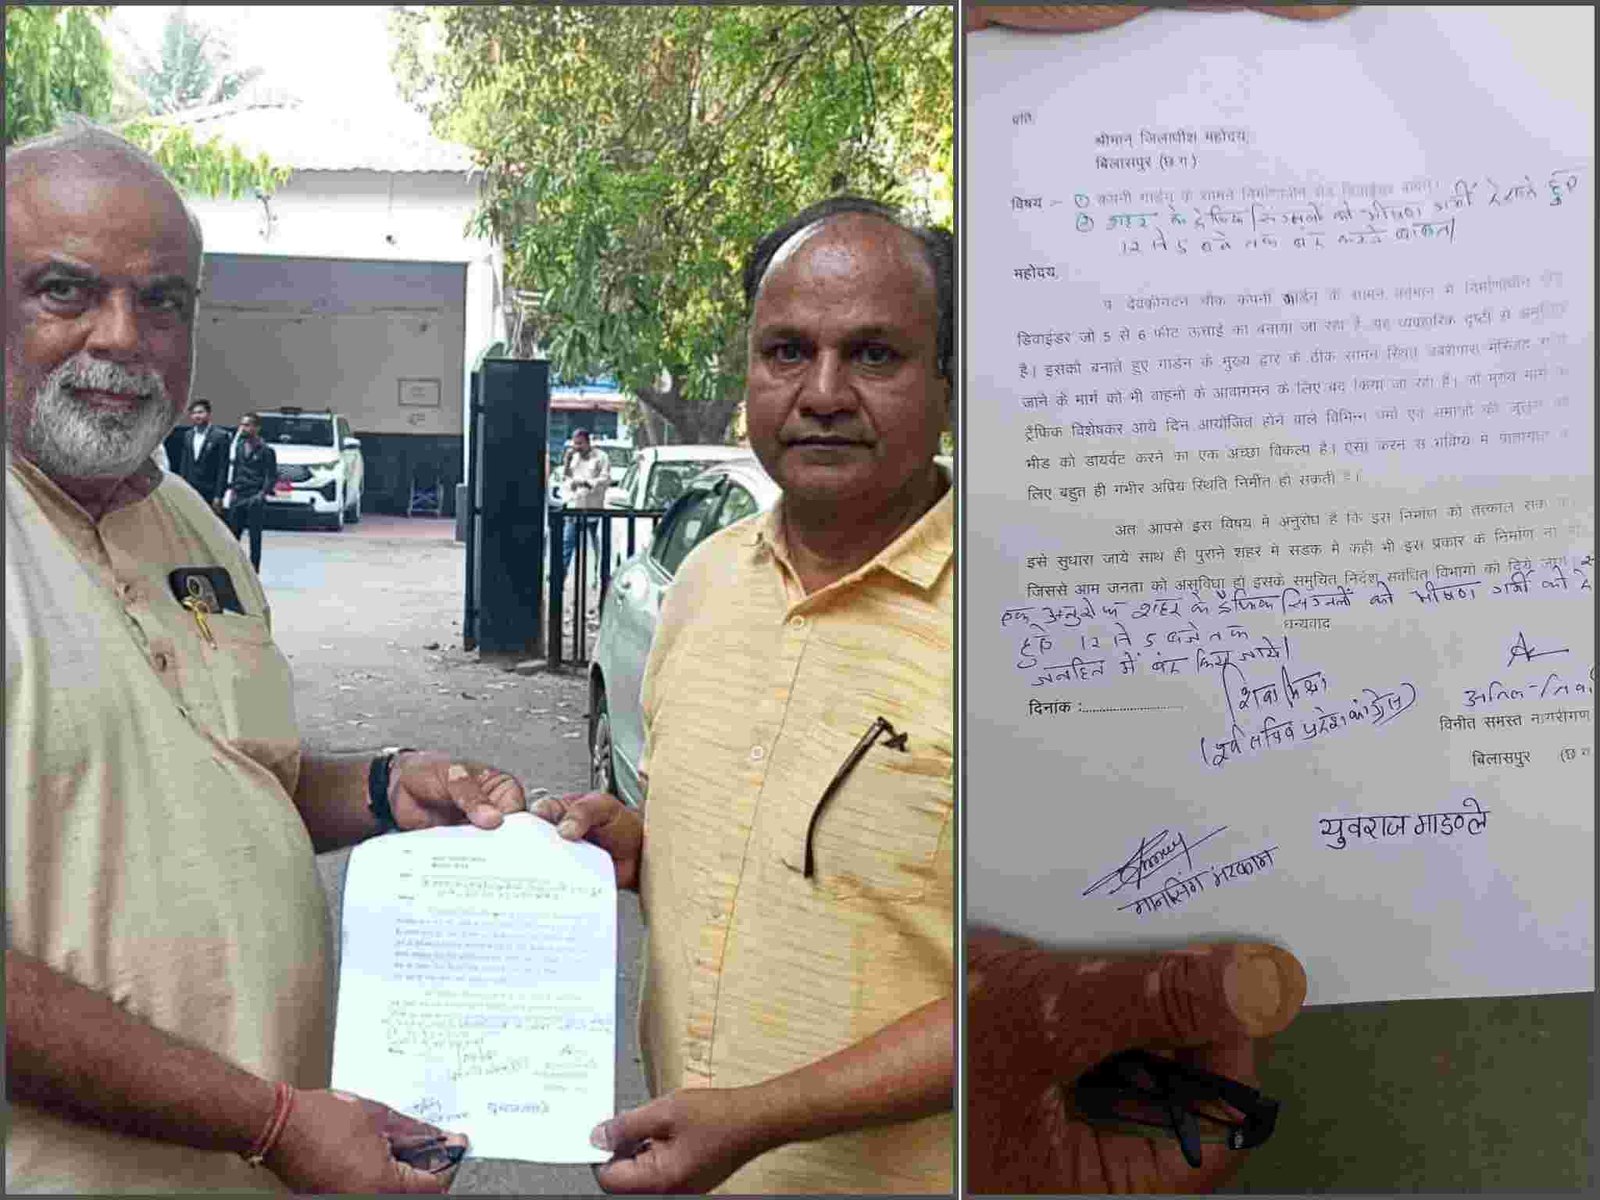 प्रति,
श्रीमान् जिलाधीश महोदय,
बिलासपुर (छ.ग.)
विषय :- (1) कंपनी गार्डन के सामने निर्माणाधीन रोड डिवाईडर बाबत्।
(2) शहर के ट्रैफिक सिग्नलों को भीषण गर्मी देखते हुए
12 से 5 बजे तक बंद करने बाबत।
महोदय,
देवकीनंदन चौक कंपनी गार्डन के सामने वर्तमान में निर्माणाधीन रोड
डिवाईडर जो 5 से 6 फीट ऊंचाई का बनाया जा रहा है, यह व्यवहारिक दृष्टी से
है। इसको बनाते हुए गार्डन के मुख्य द्वार के ठीक सामने स्थित मस्जिद
जाने के मार्ग को भी वाहनो के आवागमन के लिए बंद किया जा रहा है। जो मुख्य मार्ग
ट्रैफिक विशेषकर आये दिन आयोजित होने वाले विभिन्न धर्मो एवं समाजो की जुलुस
भीड को डायर्वट करने का एक अच्छा विकल्प है। ऐसा करने से भविष्य मे यातायात
लिए बहुत ही गंभीर अप्रिय स्थिति निर्मीत हो सकती है।
अतः आपसे इस विषय मे अनुरोध है कि इस निर्माण को तत्काल
इसे सुधारा जाये साथ ही पुराने शहर मे सडक मे कही भी इस प्रकार के निर्माण ना
जिससे आम जनता को असुविधा हो इसके समुचित निर्देश संबंधित विभागो को दिये जाये
एक अनुरोध शहर के ट्रैफिक सिग्नलों को भीषण गर्मी को
हुए 12 से 5 बजे तक
धन्यवाद
जनहित में बंद किया जाये।
दिनांक :........................
शिवा मिश्रा
(पूर्व सचिव प्रदेश कांग्रेस)
विनीत समस्त नागरीगण
बिलासपुर (छ.ग.
युवराज माडण्ले
मानसिंग मरकाम